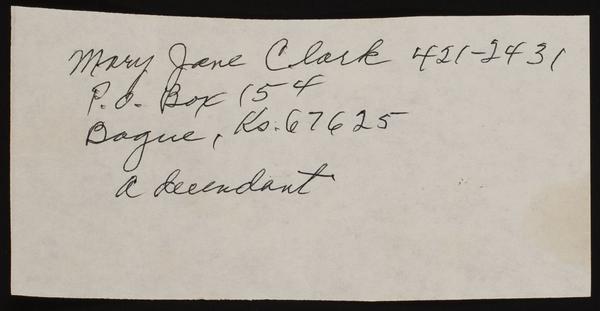 Mary Jane Clark 421-2431
P.O. Box 154
Bogue, Ks. 67625
a decendant